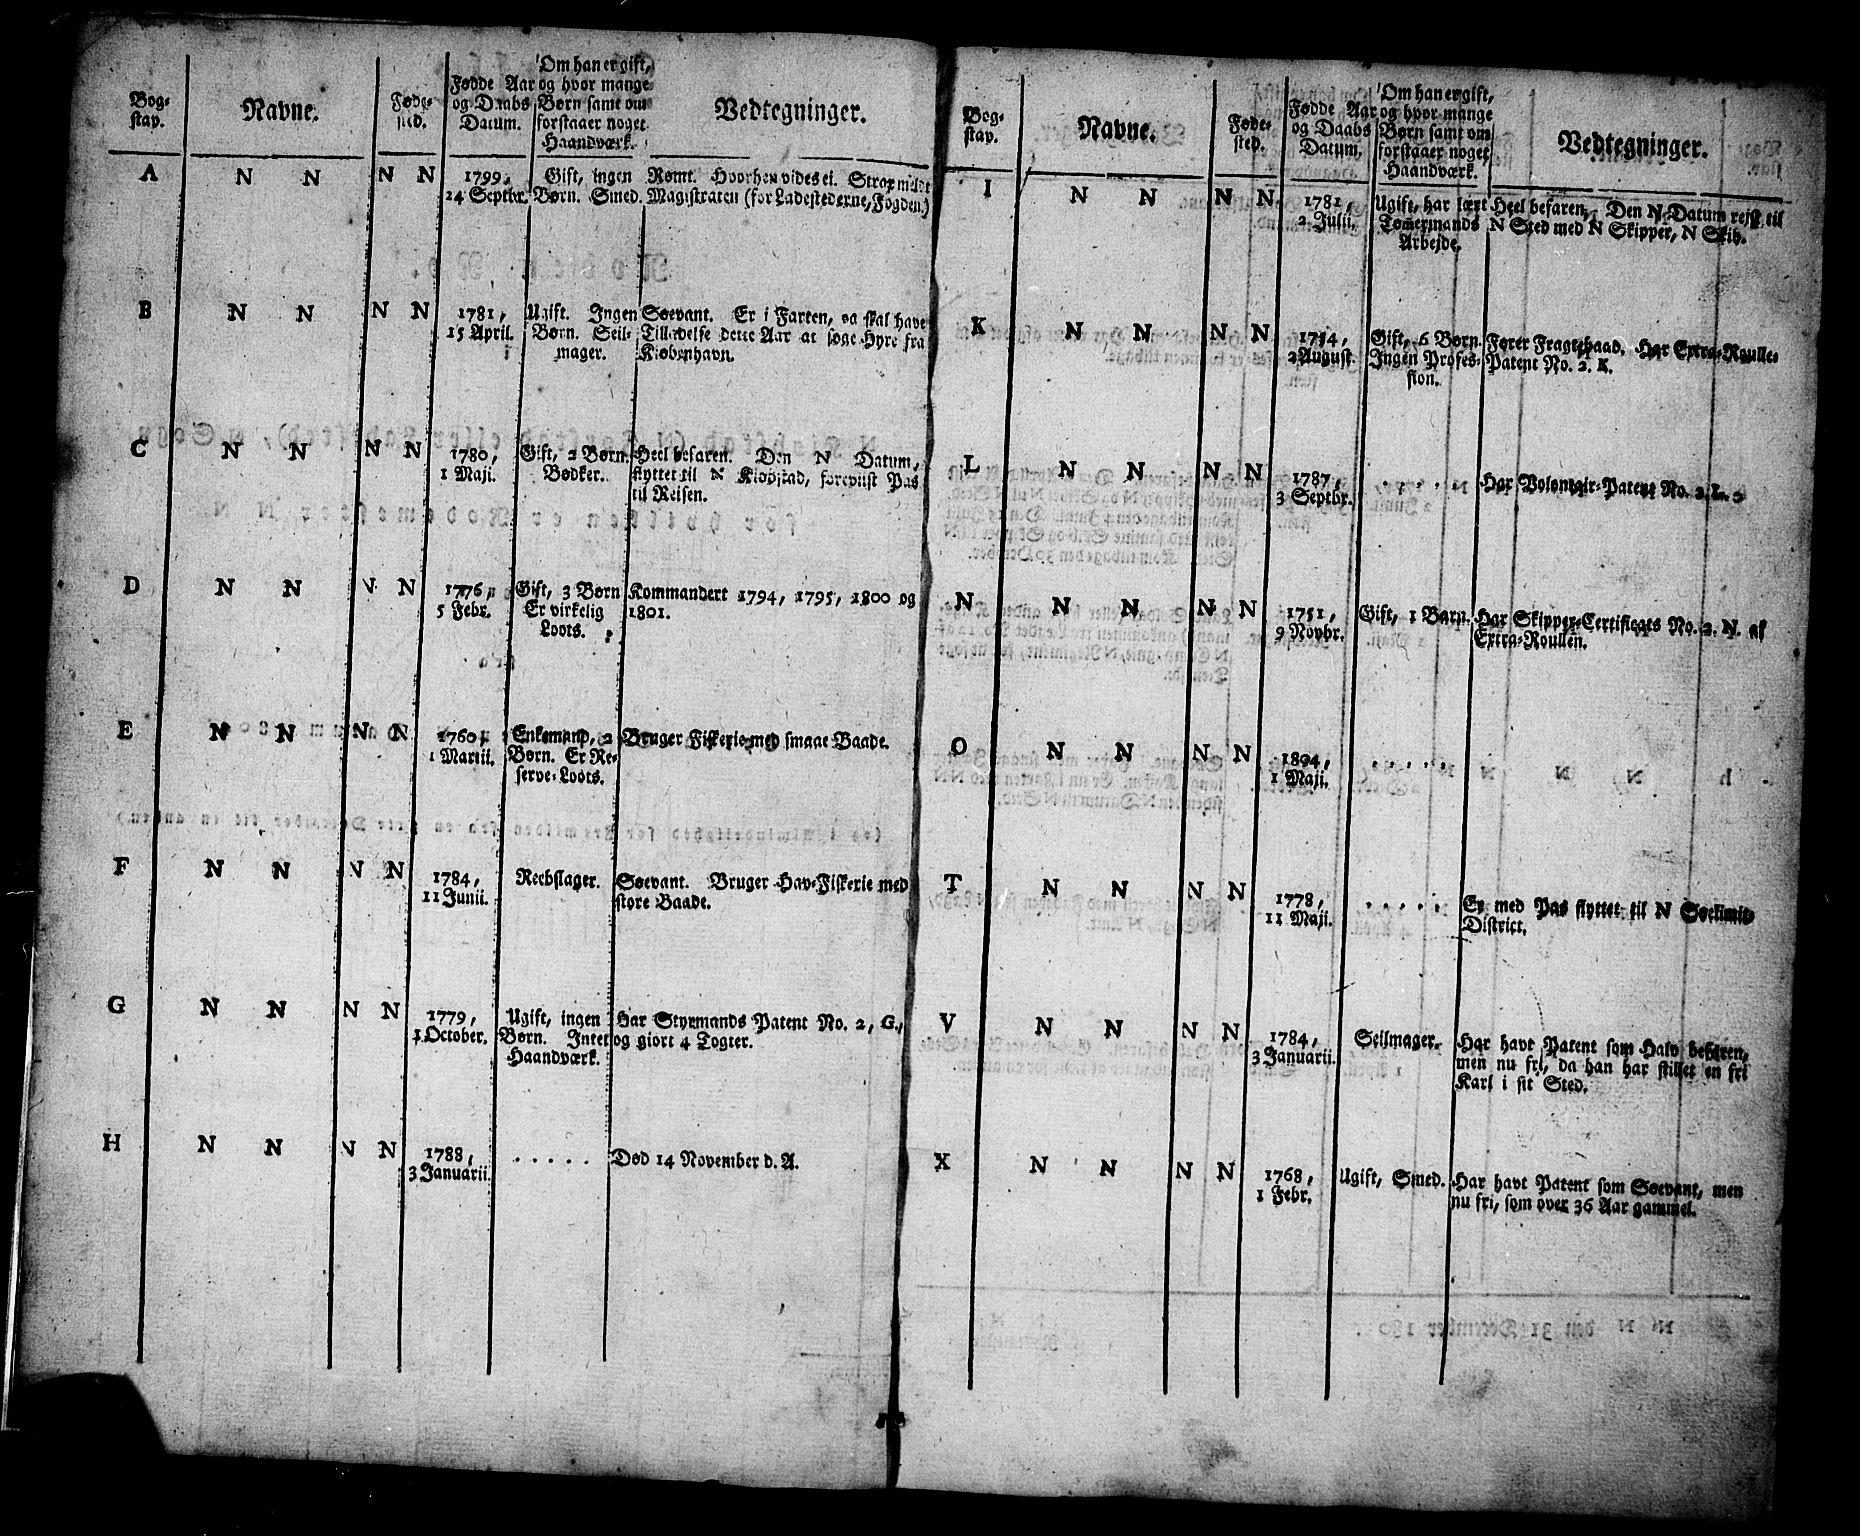 Bog-
stav.
Navne.
Føde-
sted.
Fødde Aar
og Daabs
Datum.
Om han er gift,
og hvor mange
Børn samt om
forstaaer noget
Haandværk.
Vedtegninger.
A N N N N 1799, Gift, ingen Rømt. Hvorhen vides ei. Strax meldt
24 Septbr. Børn. Smed. Magistraten (for Ladestederne, Fogden.)
B N N N N 1781, Ugift. Ingen Søevant. Er i Farten, og skal have
15 April. Børn. Seil- Tilladelse dette Aar at søge Hyre fra
mager. Kiøbenhavn.
C N N N N 1780, Gift, 2 Børn. Heel befaren. Den N Datum,
1 Maji. Bødker. flyttet til N Kiøbstad, foreviist Pas
til Reisen.
D N N N N 1776, Gift, 3 Børn Kommandert 1794, 1795, 1800 og
5 Febr. Er virkelig 1801.
Loots.
E N N N N 1760, Enkemand, 2 Bruger Fiskerie med smaae Baade.
1 Martii. Børn. Er Re-
serve-Loots.
F N N N N 1784, Reebslager. Søevant. Bruger Hav-Fiskerie med
11 Junii. store Baade.
G N N N N 1779, Ugift, ingen Har Styrmands Patent No. 2, G.,
1 October. Børn. Intet og giort 4 Togter.
Haandværk.
H N N N N 1788, . . . . . Død 14 November d. A.
3 Januarii.
Bog-
stav.
Navne.
Føde-
sted.
Fødde Aar
og Daabs
Datum.
Om han er gift,
og hvor mange
Børn samt om
forstaaer noget
Haandværk.
Vedtegninger.
I N N N N 1781, Ugift, har lært Heel befaren, Den N Datum rejst til
2 Julii. Tømermands N Sted med N Skipper, N Skib.
Arbejde.
K N N N N 1754, Gift, 6 Børn. Fører Fragtebaad. Har Extra-Roulle-
2 August. Ingen Profes- Patent No. 2. K.
sion.
L N N N N 1787, . . . . . Har Volontair-Patent No. 2 L.
3 Septbr.
N N N N N 1751, Gift, 1 Barn. Har Skipper-Certificats No. 2. N. af
9 Novbr. Extra-Roullen.
O N N N N 1804, . . . . .
1 Maji.
T N N N N 1778, . . . . . Er med Pas flyttet til N Søelimit-
11 Maji. District.
V N N N N 1784, Seilmager. Har havt Patent som Halv befaren,
3 Januarii. men nu fri, da han har stillet en fri
Karl i sit Sted.
X N N N N 1768, Ugift, Smed. Har havt Patent som Søevant, men
1 Febr. nu fri, som over 36 Aar gammel.